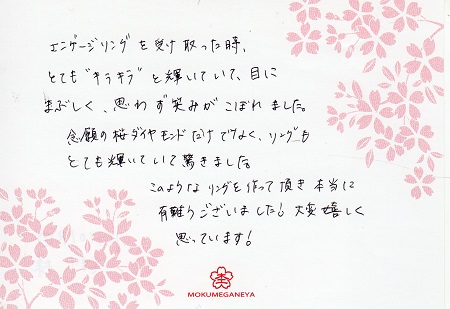 エンゲージリングを受け取った時、
とても"キラキラ"と輝いていて、目に
まぶしく、思わず笑みがこぼれました。
念願の桜ダイヤモンドだけでなく、リングも
とても輝いていて驚きました。
このようなリングを作って頂き本当に
有難うございました! 大変嬉しく
思っています!
MOKUMEGANEYA